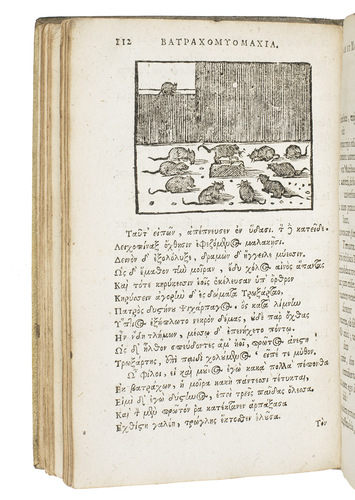 112 ΒΑΤΡΑΧΟΜΥΟΜΑΧΙΑ.
Ταῦτ' εἰπὼν, ἀπέπνευσεν ἐν ὕδασι. τὸν κατεῖδε
Λειχοπίναξ ὄχθῃσιν ἐφεζόμενος μαλακῇσι.
Δεινὸν δ' ἐξολόλυξε, δραμὼν δ' ἤγγειλε μύεσσιν.
Ὡς δ' ἔμαθον τὴν μοῖραν, ἔδυ χόλος αἰνὸς ἅπαντας
Καὶ τότε κηρύκεσσιν ἑοῖς ἐκέλευσαν ὑπ' ὄρθρον
Κηρύσσειν ἀγορὴν δ' ἐς δώματα Τρωξάρταο,
Πατρὸς δυστήνου Ψιχάρπαγος, ὃς κατὰ λίμνην
Ὕπτιος ἐξήπλωτο νεκρὸν δέμας, οὐδὲ παρ' ὄχθας
Ἦν ἤδη τλήμων, μέσσῳ δ' ἐπενήχετο πόντῳ.
Ὡς δ' ἦλθον σπεύδοντες ἅμ' ἠοῖ, πρῶτος ἀνέστη
Τρωξάρτης, ἐπὶ παιδὶ χολούμενος· εἶπέ τε μῦθον.
Ὦ φίλοι, εἰ καὶ μοῦνος ἐγὼ κακὰ πολλὰ πέπονθα
Ἐκ βατράχων, ἡ μοῖρα κακὴ πάντεσσι τέτυκται,
Εἰμὶ δ' ἐγὼ δύστηνος, ἐπεὶ τρεῖς παῖδας ὄλεσσα.
Καὶ τὸν μὲν πρῶτόν γε κατέκτανεν ἁρπάξασα
Ἐχθίστη γαλέη, τρώγλης ἔκτοσθεν ἑλοῦσα.
Τὸν